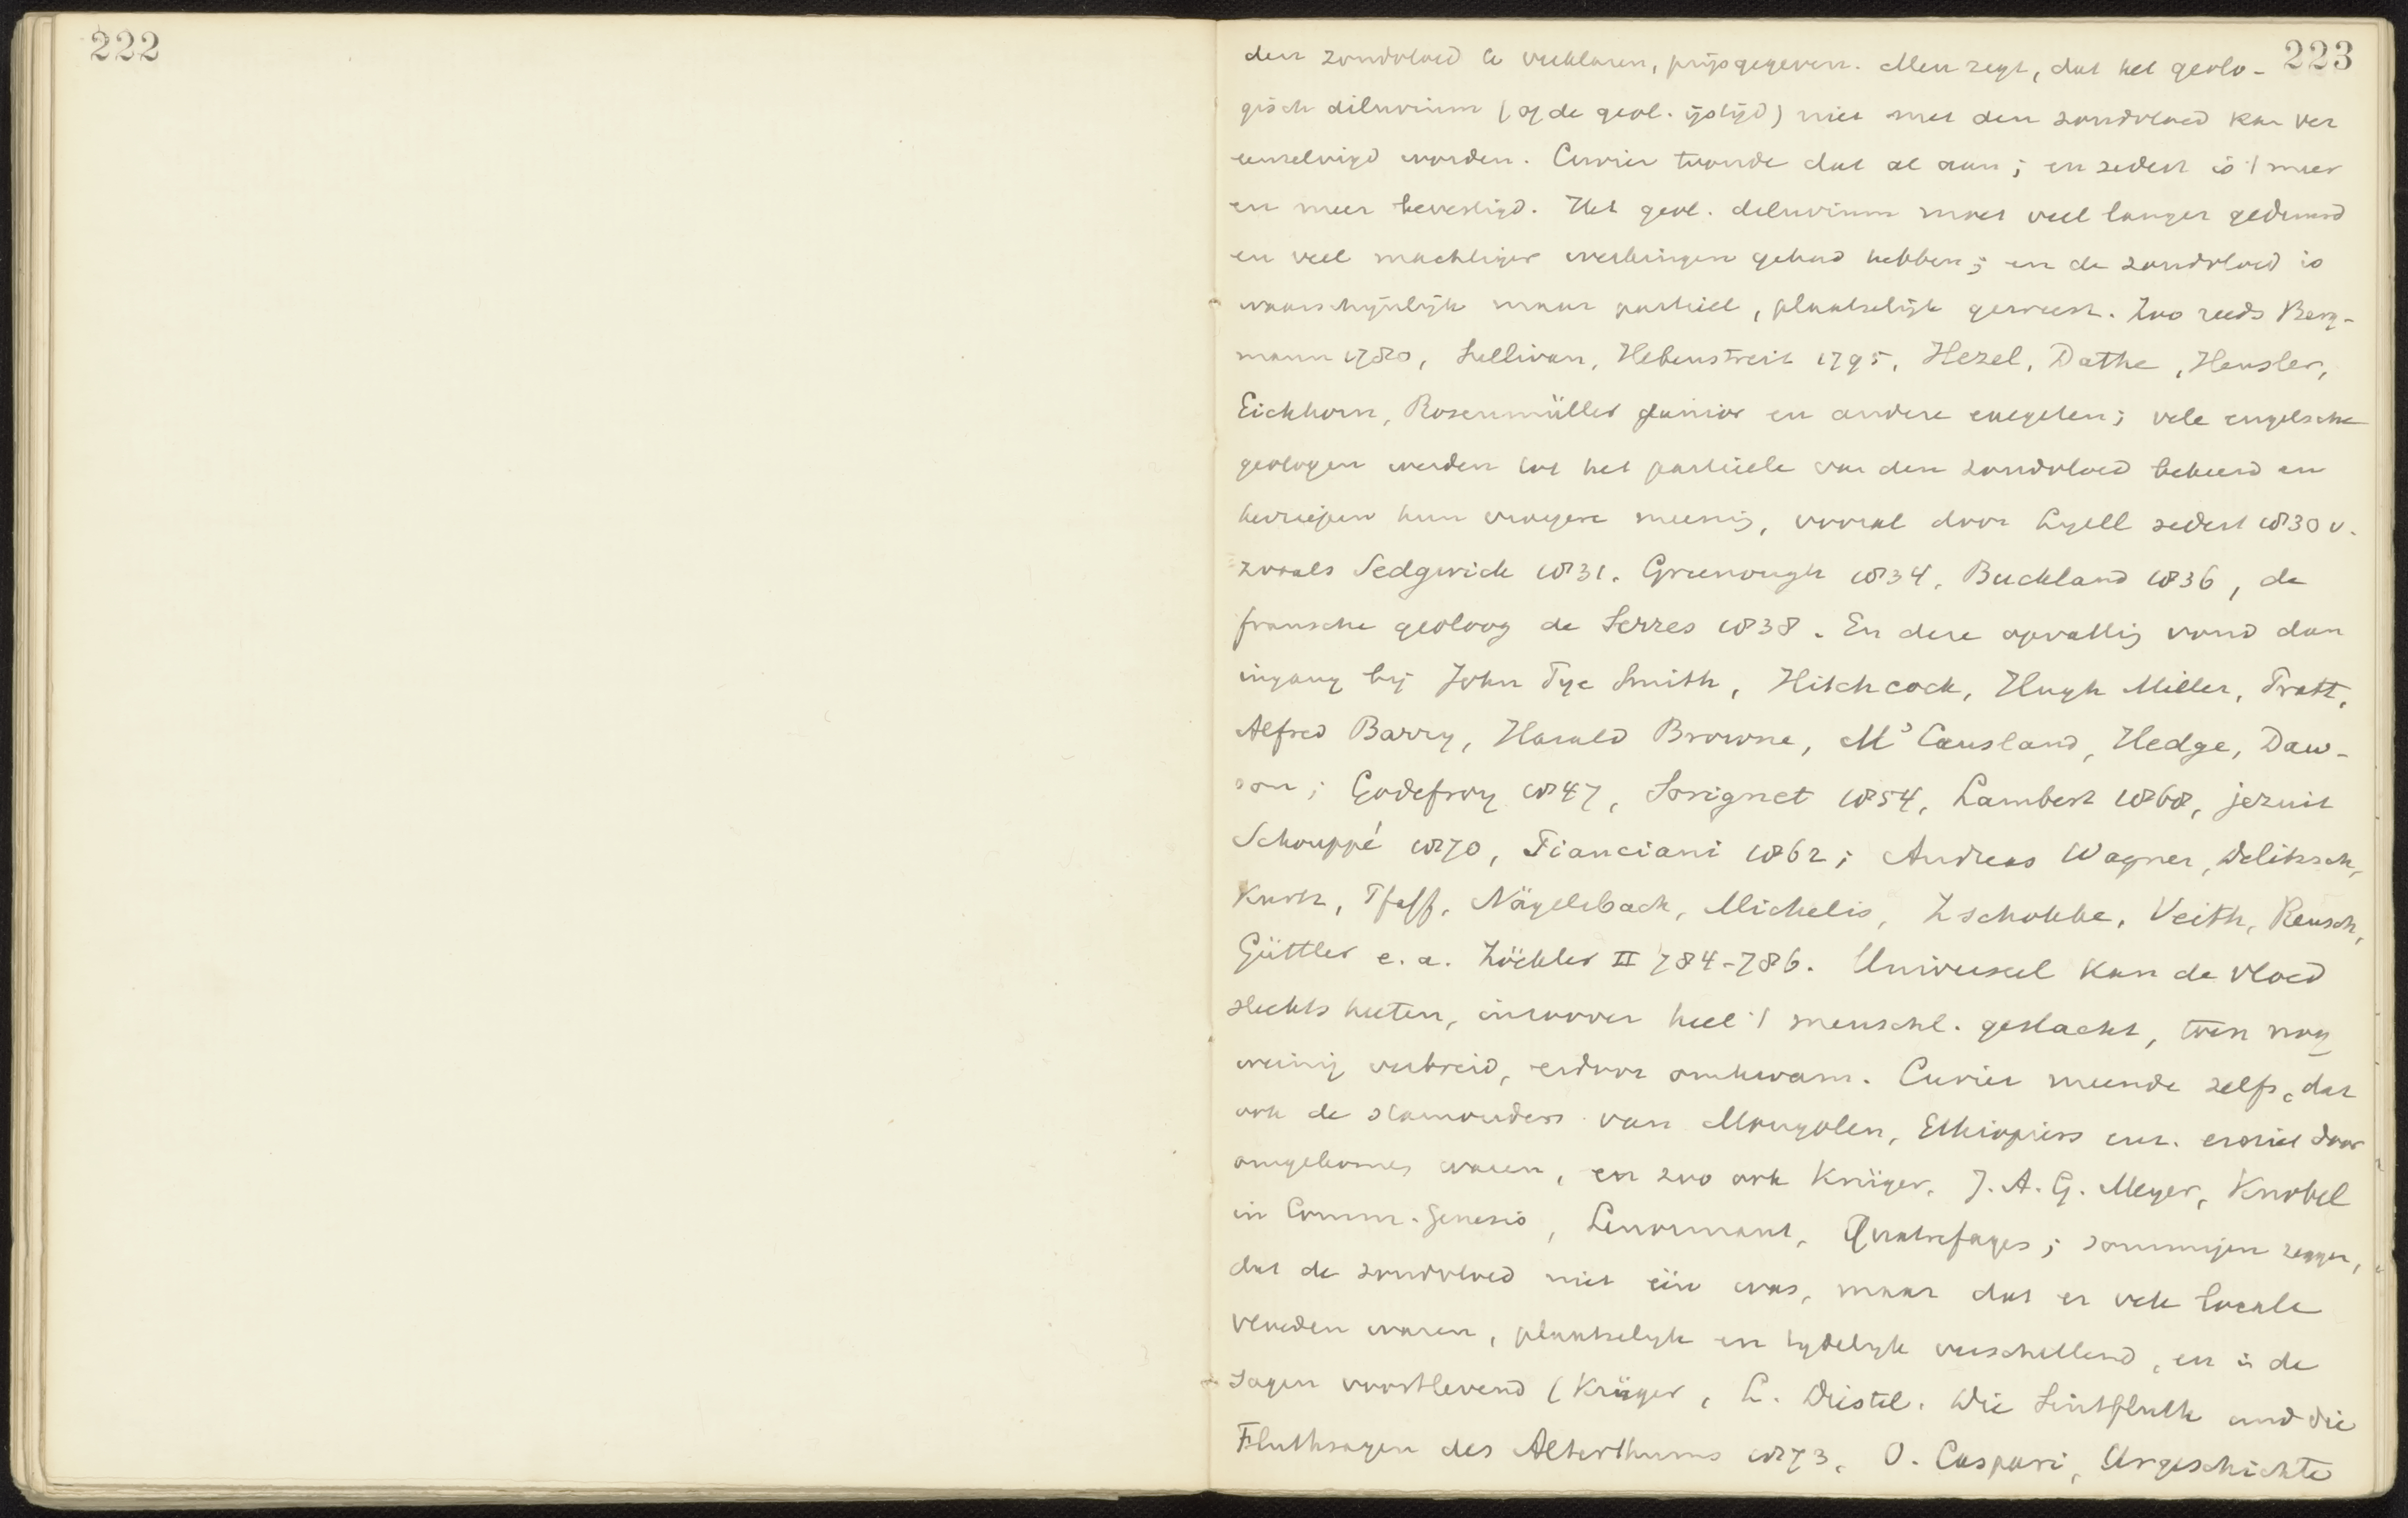 222
223
den zondvloed te verklaren, prijsgegeven. Men zegt, dat het geolo-
gisch diluvium (of de geol. ijstijd) niet met den zondvloed kan ver
eenzelvigd worden. Cuvier toonde dat al aan; en sedert is 't meer
en meer bevestigd. Het geol. diluvium moet veel langer geduurd
en veel machtiger werkingen gehad hebben; en de zondvloed is
waarschijnlijk maar partieel, plaatselijk geweest. Zoo reeds Berg-
mann 1780, Sullivan, Hebenstreit 1795, Hezel, Dathe, Hensler,
Eichhorn, Rosenmüller Junior en andere exegeten; vele engelsche
geologen werden tot het partiële van den zondvloed bekeerd en
herriepen hun vroegere meenig, vooral door Lyell sedert 1830 v.
zooals Sedgwick 1831. Greenough 1834, Buckland 1836, de
fransche geoloog de Serres 1838. En deze opvattig vond dan
ingang bij John Pye Smith, Hitchcock, Hugh Miller, Pratt,
Alfred Barry, Harold Browne, Mc Causland, Hedge, Daw-
son; Godefroy 1847, Sorignet 1854, Lambert 1868, jezuit
Schouppé 1870, Pianciani 1862; Andreas Wagner, Delitzsch,
Kurtz, Pfaff, Nägelsbach, Michelis, Zschokke, Veith, Reusch,
Güttler e. a. Zöckler II 784-786. Universeel kan de vloed
slechts heeten, inzoover heel 't menschl. geslacht, toen nog
weinig verbreid, erdoor omkwam. Cuvier meende zelfs, dat
ook de stamouders van Mongolen, Ethiopiërs enz. er niet door
omgekomen waren, en zoo ook Krüger, J. A. G. Meyer, Knobel
in Comm. Genesis, Lenormant, Quatrefages; sommigen zeggen,
dat de zondvloed niet één was, maar dat er vele locale
vloeden waren, plaatselijk en tydelyk verschillend, en in de
sagen voortlevend (Krüger, L. Diestel. Die Sintfluth und die
Fluthsagen des Alterthums 1873, O. Caspari, Urgeschichte